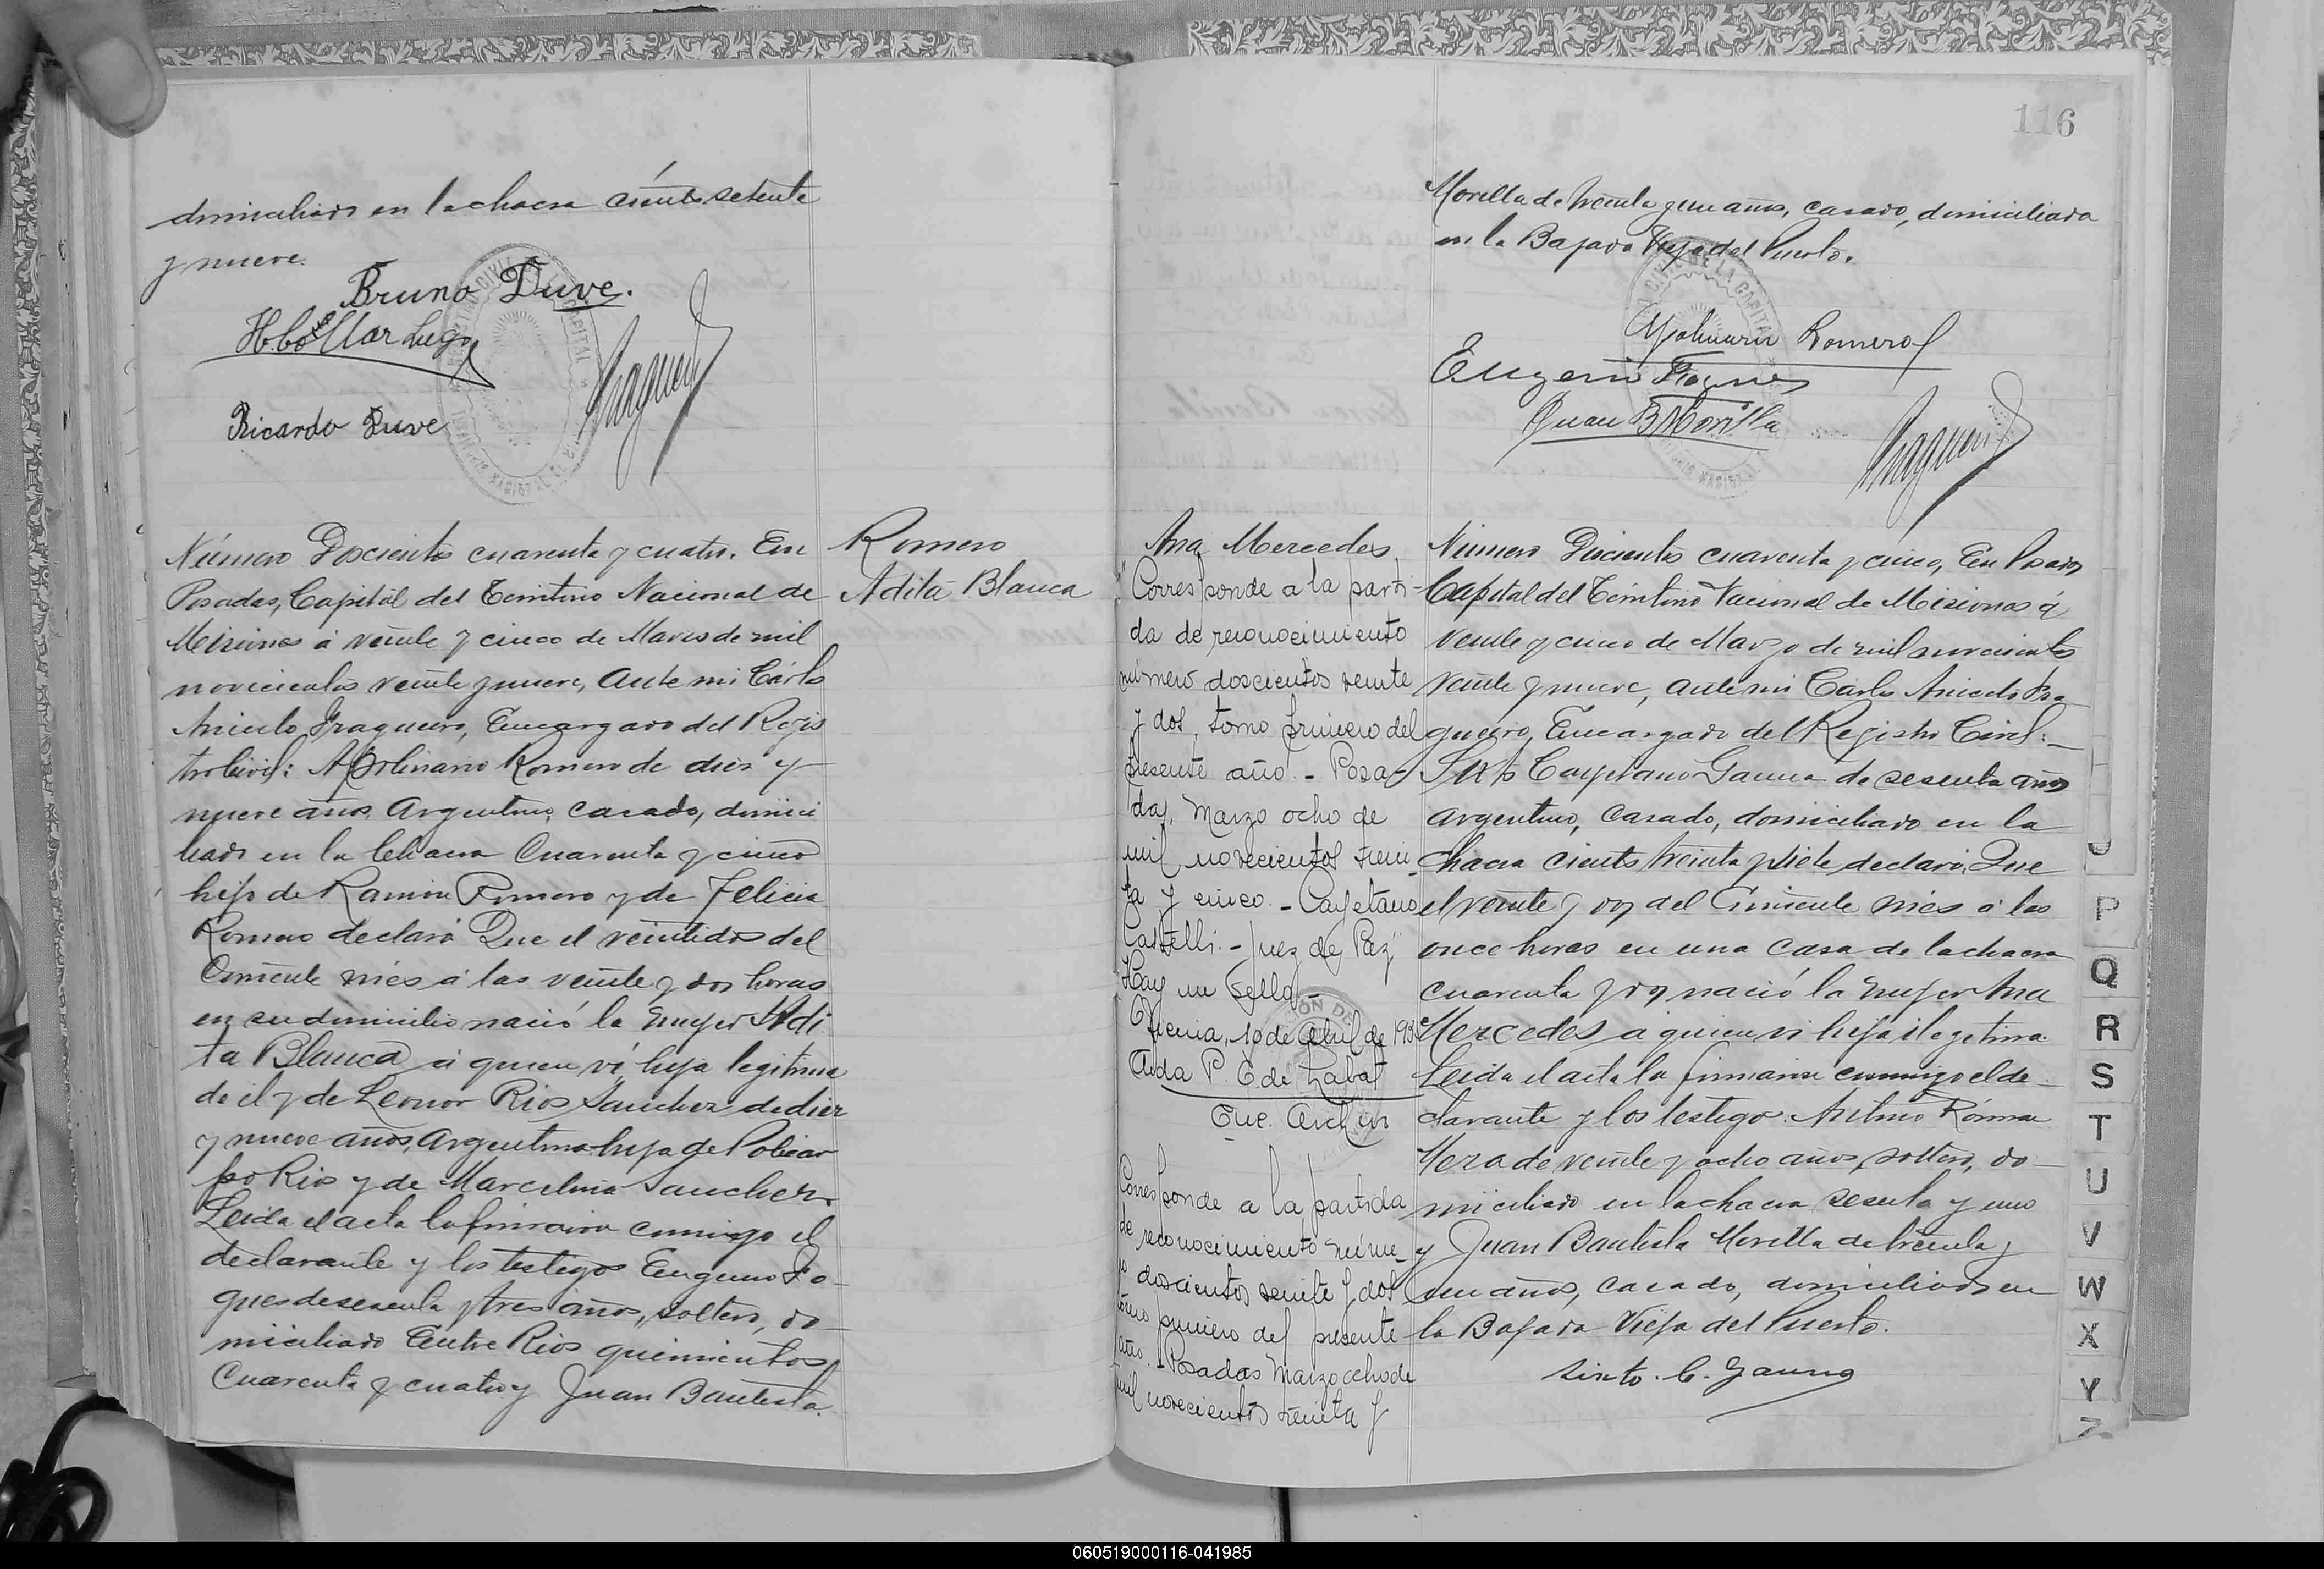 domiciliado en la chacra ciento setenta
y nueve.
Bruno Duve.
Ricardo Duve
Número Doscientos cuarenta y cuatro. En
Posadas, Capital del Territorio Nacional de
Misiones á veinte y cinco de Marzo de mil
novecientos veinte y nueve, ante mi Cárlos
Aniceto Fragueiro, Encargado del Regis
tro Civil: Apolinario Romero de diez y
nueve años, Argentino, casado, domici
liado en la Chacra Cuarenta y cinco
hijo de Ramon Romero y de Felicia
Romero declaró Que el veintidos del
Corriente mes á las veinte y dos horas
en su domicilio nació la mujer Adi
ta Blanca á quien vi, hija legitima
de él y de Leonor Rios Sanchez de diez
y nueve años, Argentina hija de Policar
po Rios y de Marcelina Sanchez.
Leida el acta la firmaron conmigo el
declarante y los testigos Eugenio Fo
ques de sesenta y tres años, soltero, do
miciliado Entre Rios quinientos
Cuarenta y cuatro y Juan Bautista
Romero
Adita Blanca
116
Morilla de treinta y un años, casado, domiciliado
en la Bajada Vieja del Puerto.
Apolinario Romero
Juan B Morilla
Ana Mercedes
"Corresponde a la parti-
da de reconocimiento
número doscientos veinte
y dos, tomo primero del
presente año. - Posa-
das, Marzo ocho de
mil novecientos trein
ta y cinco. - Cayetano
Castelli. - Juez de Paz"
Hay un sello -
Oficina, 10 de Abril de 193
Aida P. E. de
Enc. Archivo
Corresponde a la partida
de reconocimiento núme-
ro doscientos veinte y dos
tomo primero del presente
año. - Posadas Marzo ocho de
mil novecientos treinta y
Número Doscientos cuarenta y cinco, En Posadas
Capital del Territorio Nacional de Misiones á
veinte y cinco de Marzo de mil novecientos
veinte y nueve, ante mi Cárlos Aniceto Fra
gueiro, Encargado del Registro Civil: -
Sixto Cayetano Gauna de sesenta años
argentino, casado, domiciliado en la
chacra ciento treinta y siete declaró, Que
el veinte y dos del Corriente mes á las
once horas en una casa de la chacra
cuarenta y dos nació la mujer Ana
Mercedes a quien vi hija ilegitima.
Leida el acta la firmaron conmigo el de
clarante y los testigos. Antonio Róman
Mera de veinte y ocho años, soltero, do
miciliado en la chacra sesenta y uno
y Juan Bautista Morilla de treinta y
un años, casado, domiciliado en
la Bajada Vieja del Puerto.
Sixto. C. Gauna
P
Q
R
S
T
U
V
W
X
Y
Z
060519000116-041985